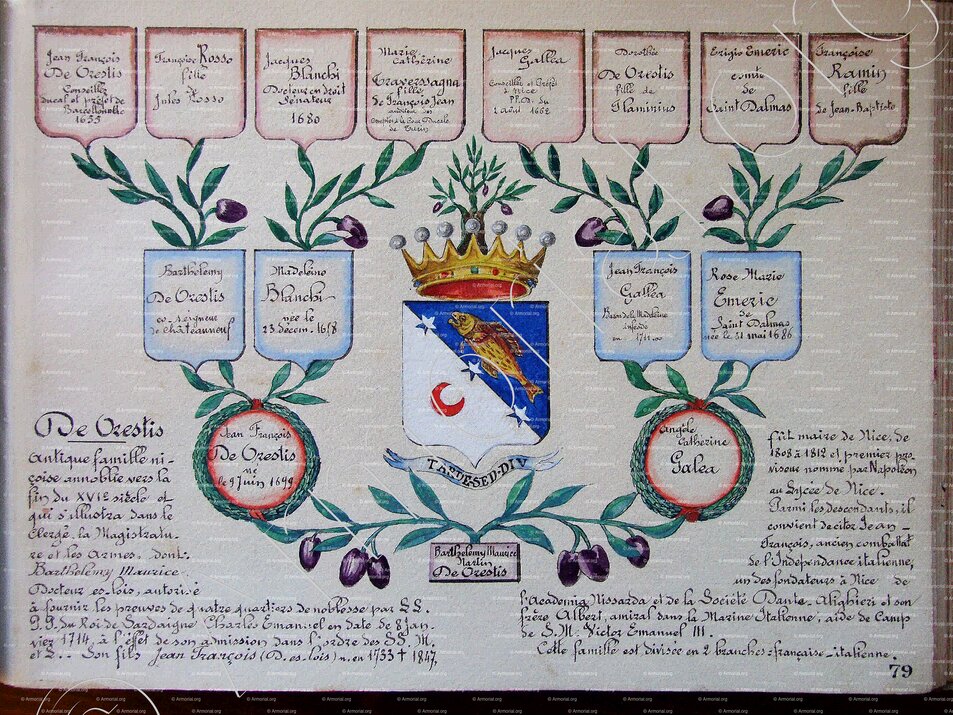 Jean François
De Orestis
Conseiller
ducal et préfet de
Barcellonette
1655
Françoise Rosso
fille
de
Jules Rosso
Jacques
Blanchi
Docteur en droit
Sénateur
1680
Marie
Cathérine
Traversagna
fille
de François Jean
Jacques
Galléa
Conseiller et Préfet
à Nice
P.P.D. du
2 avril 1662
Dorothée
De Orestis
fille de
Flaminius
Erigio Emeric
comte
de
Saint Dalmas
Françoise
Ramin
fille
de Jean-Baptiste
Barthélemy
De Orestis
co-seigneur
de châteauneuf
Madeleine
Blanchi
née le
23 Décem. 1658
Jean François
Galléa
Baron de la Madeleine
inféodé
en 1711
Rose Marie
Emeric
de
Saint Dalmas
née le 31 mai 1686
Jean François
De Orestis
né
le 9 Juin 1699
Angèle
Catherine
Galea
TARDE·SED·DIV
Barthélemy Maurice
Martin
De Orestis
De Orestis
Antique famille ni-
çoise annoblie vers la
fin du XVIe siècle et
qui s'illustra dans le
Clergé, la Magistratu-
re et les Armes, dont:
Barthélemy Maurice
Docteur es-lois, autorisé
à fournir les preuves de quatre quartiers de noblesse par LL.
P.P. du Roi de Sardaigne Charles Emanuel en date de 8 Jan-
vier 1714, à l'effet de son admission dans l'ordre des SS. M.
et L.. Son fils Jean François (D. es lois) n. en 1733 † 1847,
fût maire de Nice, de
1808 à 1812 et premier pro-
viseur nommé par Napoléon
au Lycée de Nice.
Parmi les descendants, il
convient de citer Jean-
François, ancien combattat
de l'Indépendance italienne,
un des fondateurs à Nice de
l'Academia Nissarda et de la Société Dante Alighieri et son
frère Albert, amiral dans la Marine Italienne, aide de Camp
de S.M. Victor Emanuel III.
Cette famille est divisée en 2 branches: française-italienne.
79
© Armorial.org